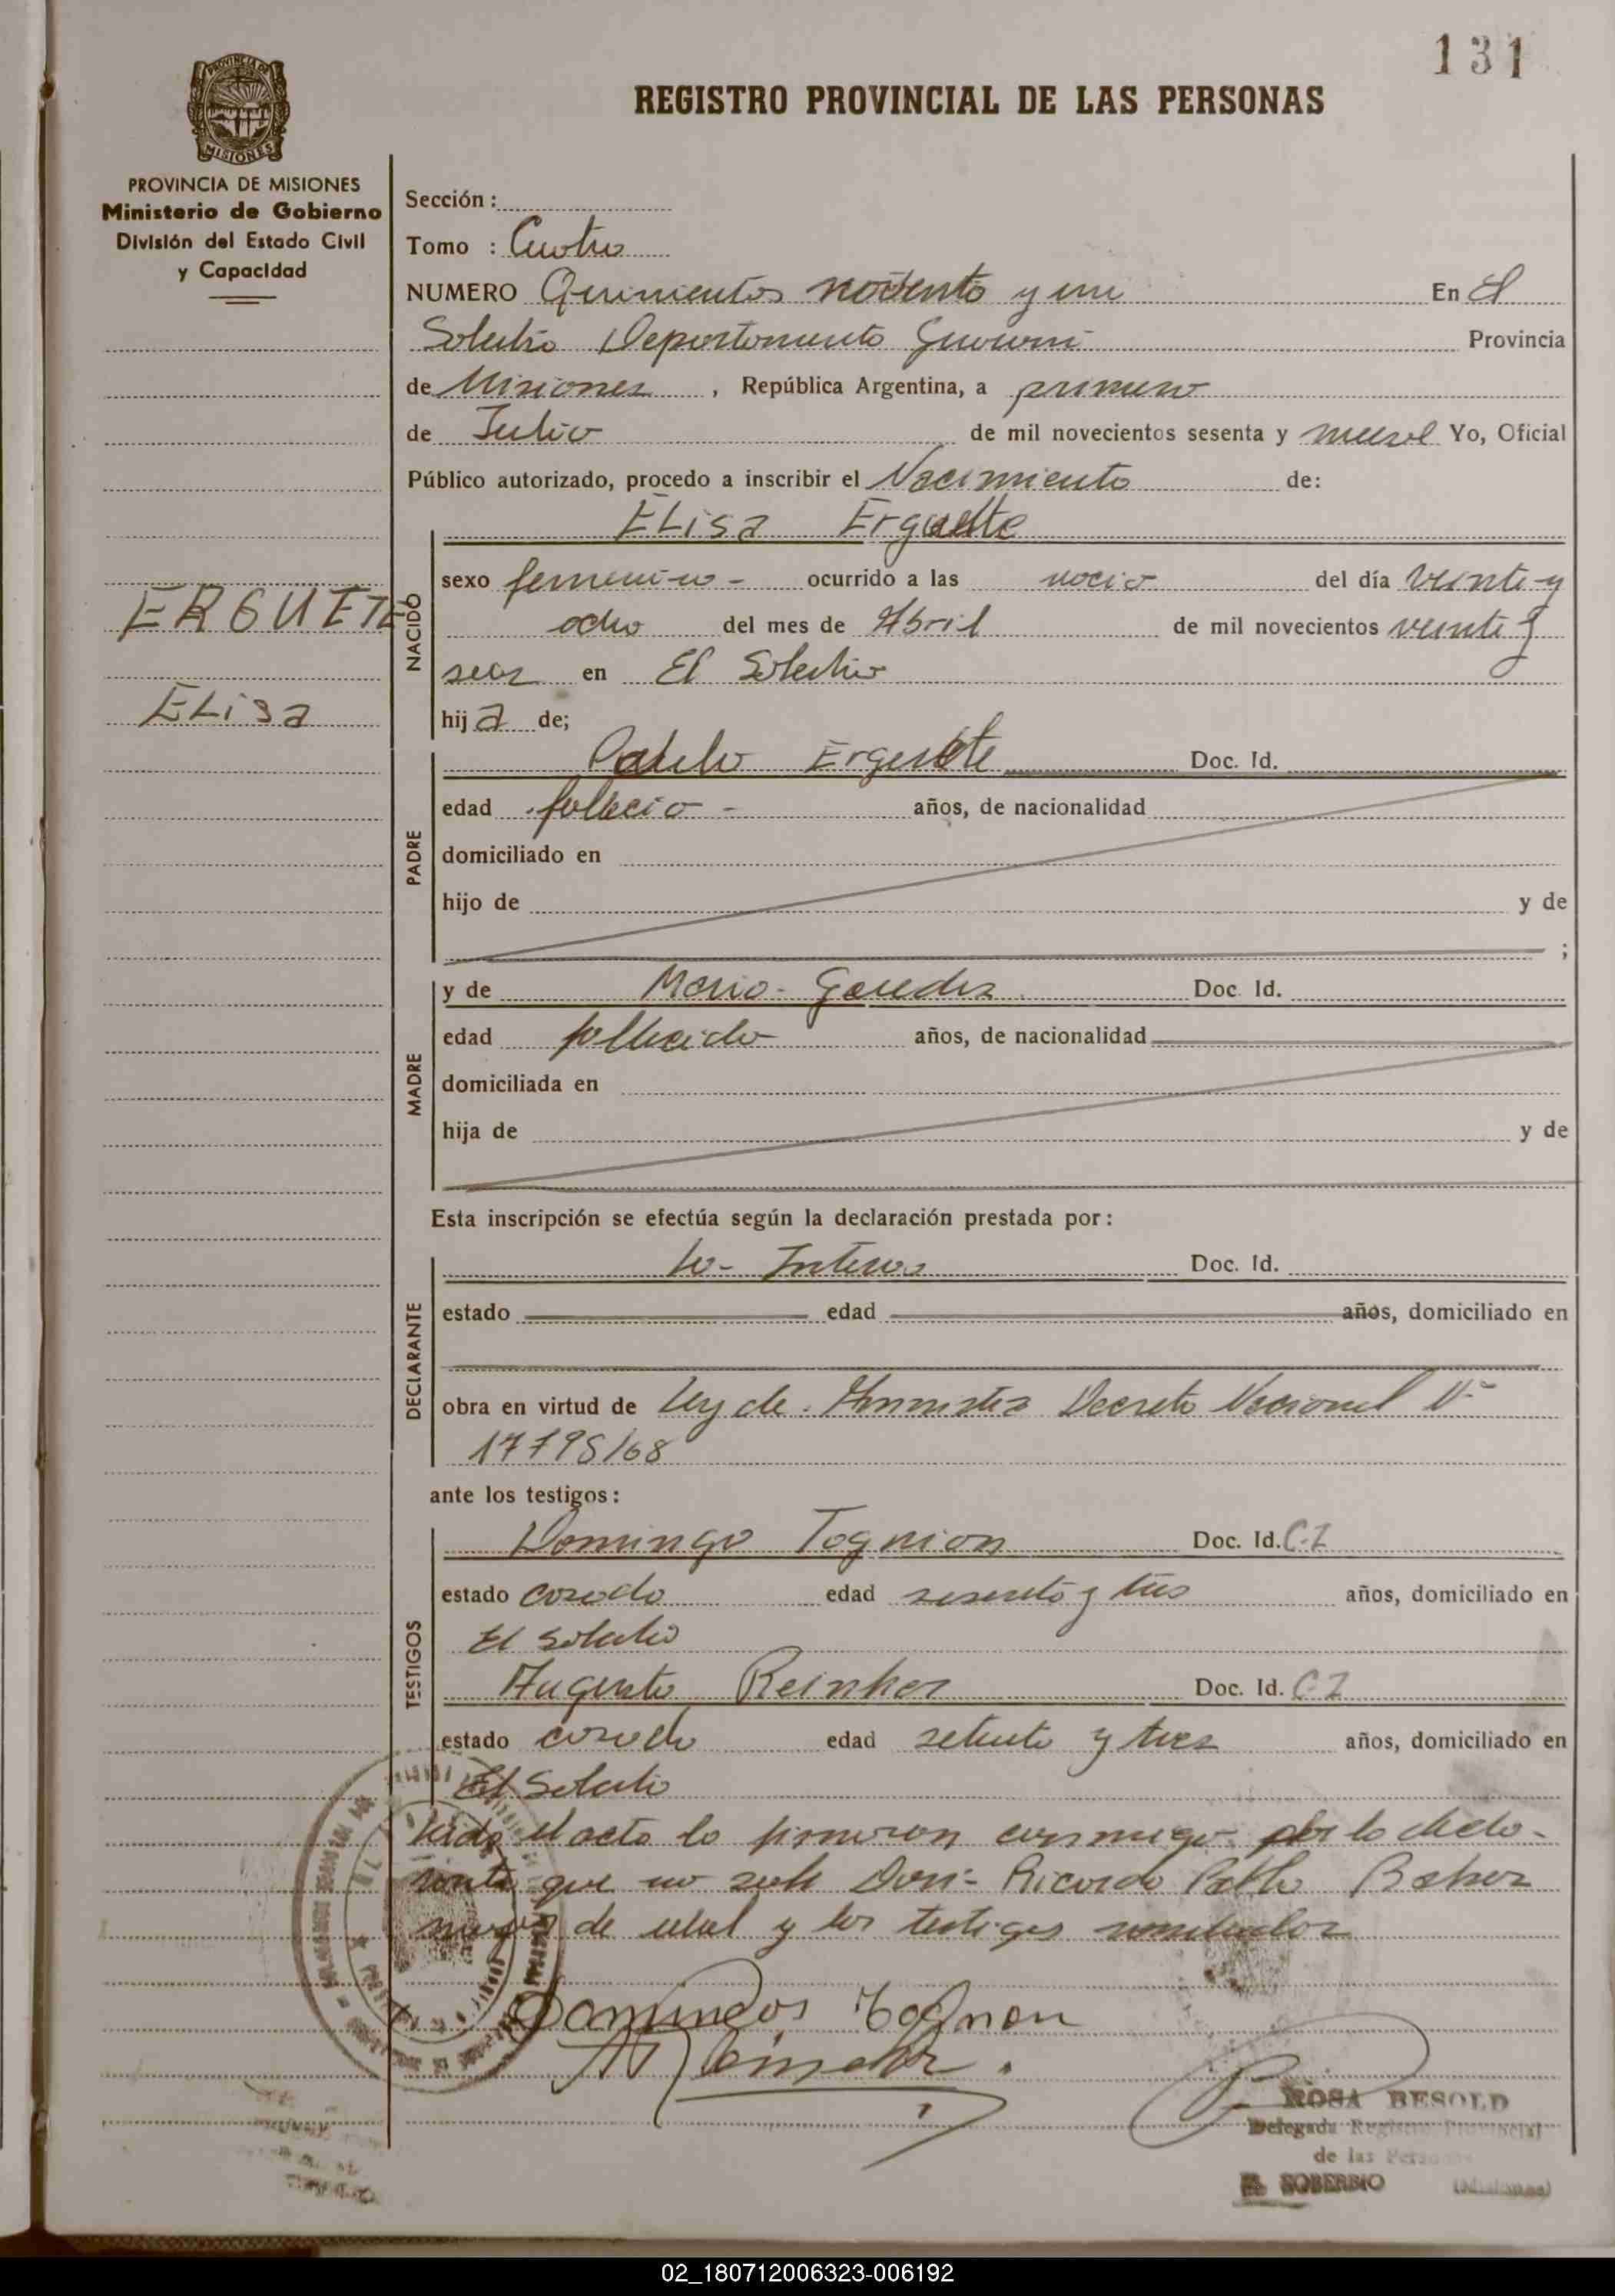 131
REGISTRO PROVINCIAL DE LAS PERSONAS
PROVINCIA DE MISIONES
PROVINCIA DE MISIONES
Ministerio de Gobierno
División del Estado Civil
y Capacidad
Sección :
Tomo : Cuatro
NUMERO Quinientos noventa y un En El
Soberbio Departamento Guarani Provincia
de Misiones , República Argentina, a primero
de Julio de mil novecientos sesenta y nueve Yo, Oficial
Público autorizado, procedo a inscribir el Nacimiento de:
ELisa Erguete
ERGUETE
ELisa
NACIDO
sexo femenino - ocurrido a las nacio del día veinte y
ocho del mes de Abril de mil novecientos veinte y
seis en El Soberbio
hija de;
PADRE
Pablo Erguete Doc. Id.
edad fallecio - años, de nacionalidad
domiciliado en
hijo de y de
;
MADRE
y de Maria - Guedes Doc. Id.
edad fallecida años, de nacionalidad
domiciliada en
hija de y de
Esta inscripción se efectúa según la declaración prestada por :
DECLARANTE
la - Interes Doc. Id.
estado edad años, domiciliado en
obra en virtud de Ley de Amnistia Decreto Nacional Nº
17795/68
ante los testigos :
TESTIGOS
Domingo Tognion Doc. Id. C.I
estado casado edad sesenta y tres años, domiciliado en
El Soberbio
Augusto Reinher Doc. Id. C I
estado casado edad setenta y tres años, domiciliado en
El Soberbio
Leida el acta lo firmaron conmigo por la decla-
rante que no sabe Don - Ricardo Pablo
mayor de edad y los testigos nombrados
Domingos Tognon
ROSA BESOLD
Delegada Registro Provincial
de las Personas
EL SOBERBIO (Misiones)
02_180712006323-006192